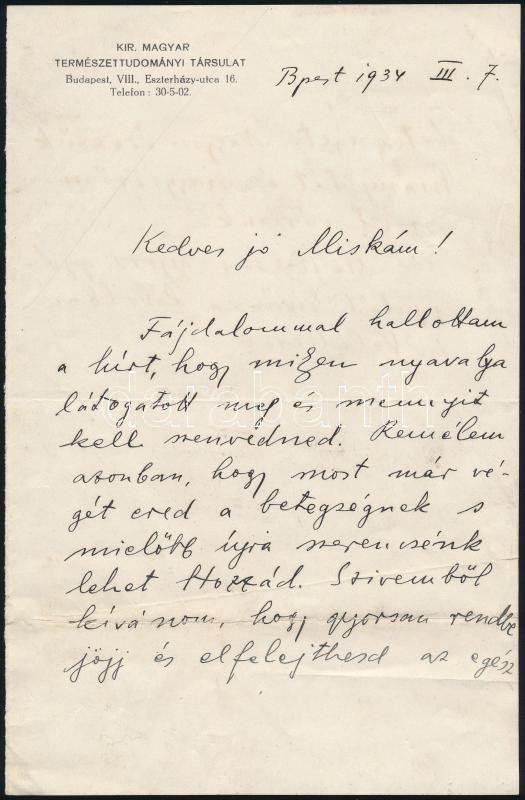 KIR. MAGYAR
TERMÉSZETTUDOMÁNYI TÁRSULAT
Budapest, VIII., Eszterházy-utca 16.
Telefon: 30-5-02.
Bpest 1934 III. 7.
Kedves jó Miskám!
Fájdalommal hallottam
a hírt, hogy milyen nyavalya
látogatott meg és mennyit
kell szenvedned. Remélem
azonban, hogy most már vé-
gét éred a betegségnek s
mielőbb újra szerencsénk
lehet Hozzád. Szivemből
kívánom, hogy gyorsan rendbe
jöjj és elfelejthesd az egész
darabanth